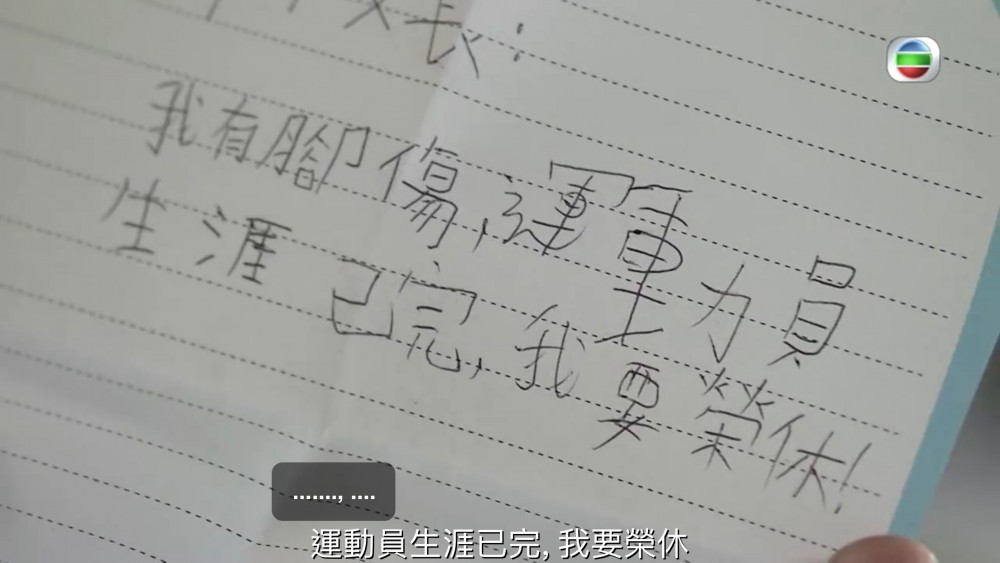 長:
我有腳傷,運動員
生涯已完,我要榮休!
......., ....
運動員生涯已完, 我要榮休